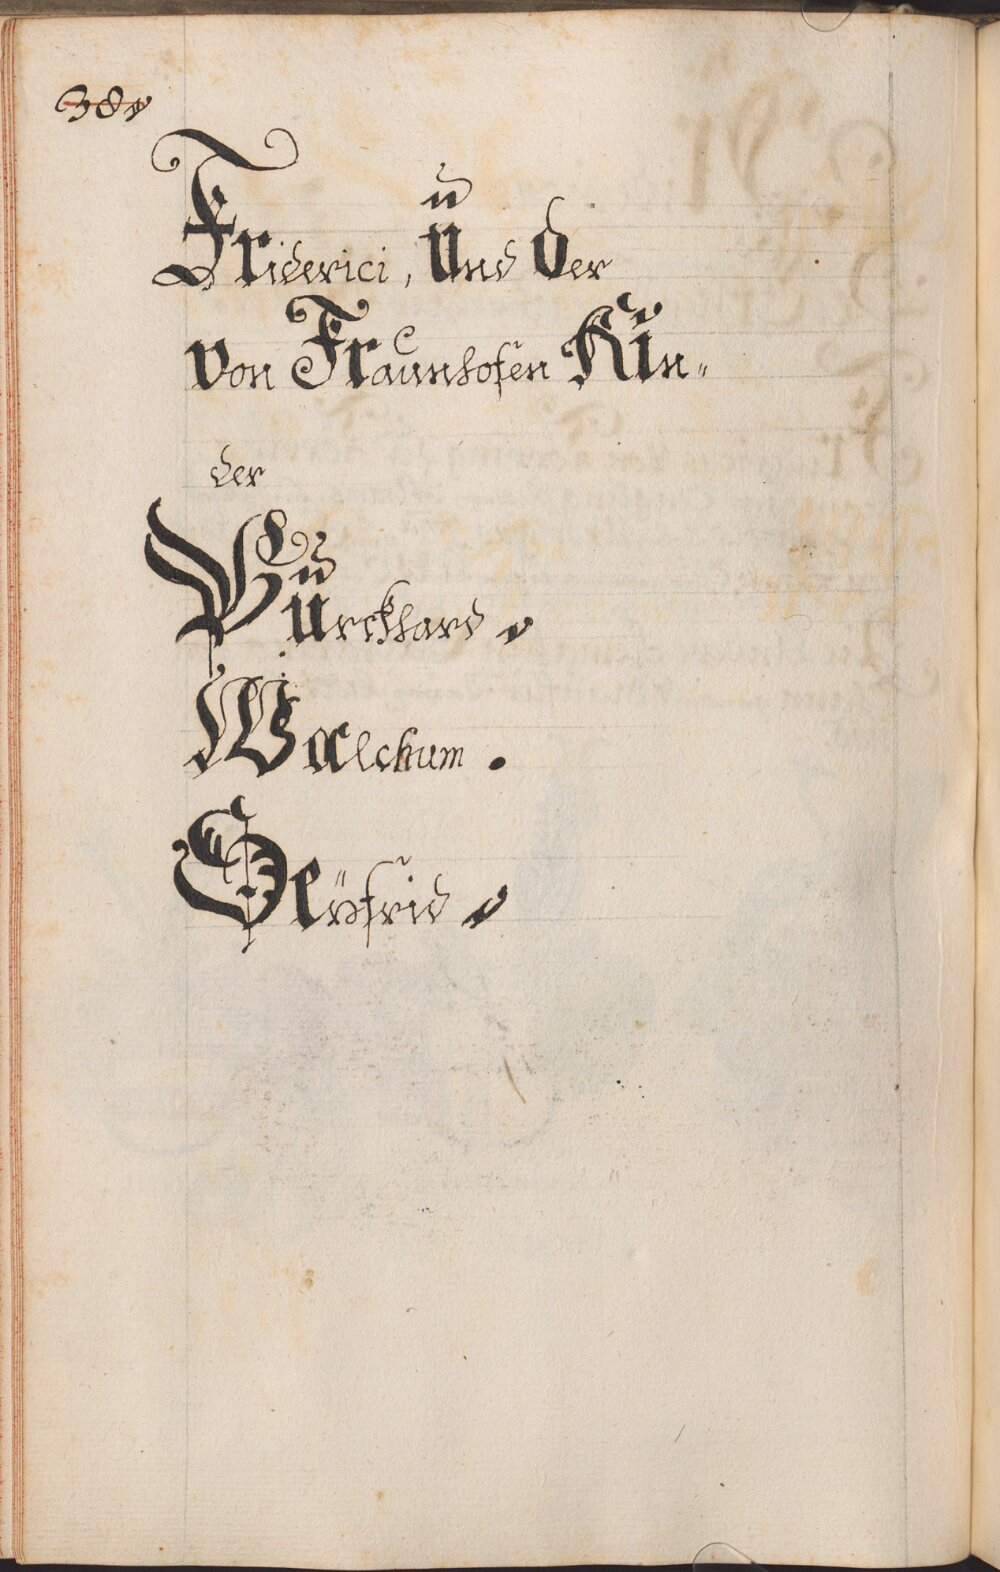 38v
Friderici, Und der
von Fraunhofen Kin„
der
Burckhard
Walchum .
Seÿfrid